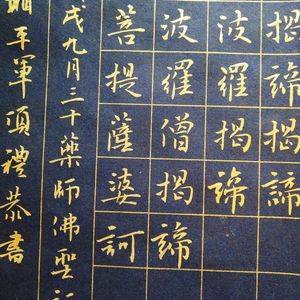 揭諦揭諦
波羅揭諦
波羅僧揭諦
菩提薩婆訶
戌九月三十藥師佛聖
軍頂禮恭書